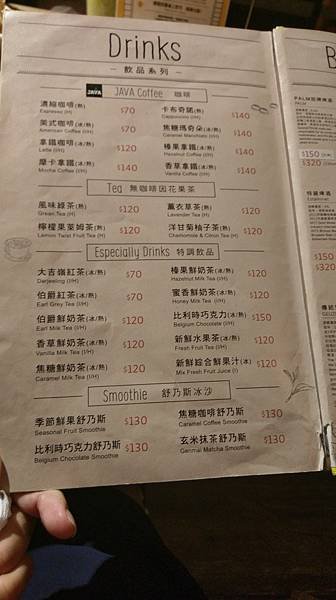 Drinks
飲品系列
JAVA
JAVA Coffee 咖啡
濃縮咖啡(熱) $70
Espresso (H)
美式咖啡(冰/熱) $70
American Coffee (I/H)
拿鐵咖啡(冰/熱) $120
Latte (I/H)
摩卡拿鐵(冰/熱) $140
Mocha Coffee (I/H)
卡布奇諾(熱) $140
Cappuccino (H)
焦糖瑪奇朵(冰/熱) $140
Caramel Macchiato (I/H)
榛果拿鐵(冰/熱) $140
Hazelnut Coffee (I/H)
香草拿鐵(冰/熱) $140
Vanilla Coffee (I/H)
Tea 無咖啡因花果茶
風味綠茶(熱) $120
Green Tea (H)
檸檬果萊姆茶(熱) $120
Lemon Twist Fruit Tea (H)
薰衣草茶(熱) $120
Lavender Tea (H)
洋甘菊柚子茶(熱) $120
Chamomile & Citron Tea (H)
Especially Drinks 特調飲品
大吉嶺紅茶(冰/熱) $70
Darjeeling (I/H)
伯爵紅茶(冰/熱) $70
Earl Grey Tea (I/H)
伯爵鮮奶茶(冰/熱) $120
Earl Milk Tea (I/H)
香草鮮奶茶(冰/熱) $120
Vanilla Milk Tea (I/H)
焦糖鮮奶茶(冰/熱) $120
Caramel Milk Tea (I/H)
榛果鮮奶茶(冰/熱) $120
Hazelnut Milk Tea (I/H)
蜜香鮮奶茶(冰/熱) $120
Honey Milk Tea (I/H)
比利時巧克力(冰/熱) $150
Belgium Chocolate (I/H)
新鮮水果茶(冰/熱) $120
Fresh Fruit Tea (I/H)
新鮮綜合鮮果汁(冰) $120
Mix Fresh Fruit Juice (I)
Smoothie 舒乃斯冰沙
季節鮮果舒乃斯 $130
Seasonal Fruit Smoothie
比利時巧克力舒乃斯 $130
Belgium Chocolate Smoothie
焦糖咖啡舒乃斯 $130
Caramel Coffee Smoothie
玄米抹茶舒乃斯 $130
Genmai Matcha Smoothie
B
PALM
$150
$320
$150
$320